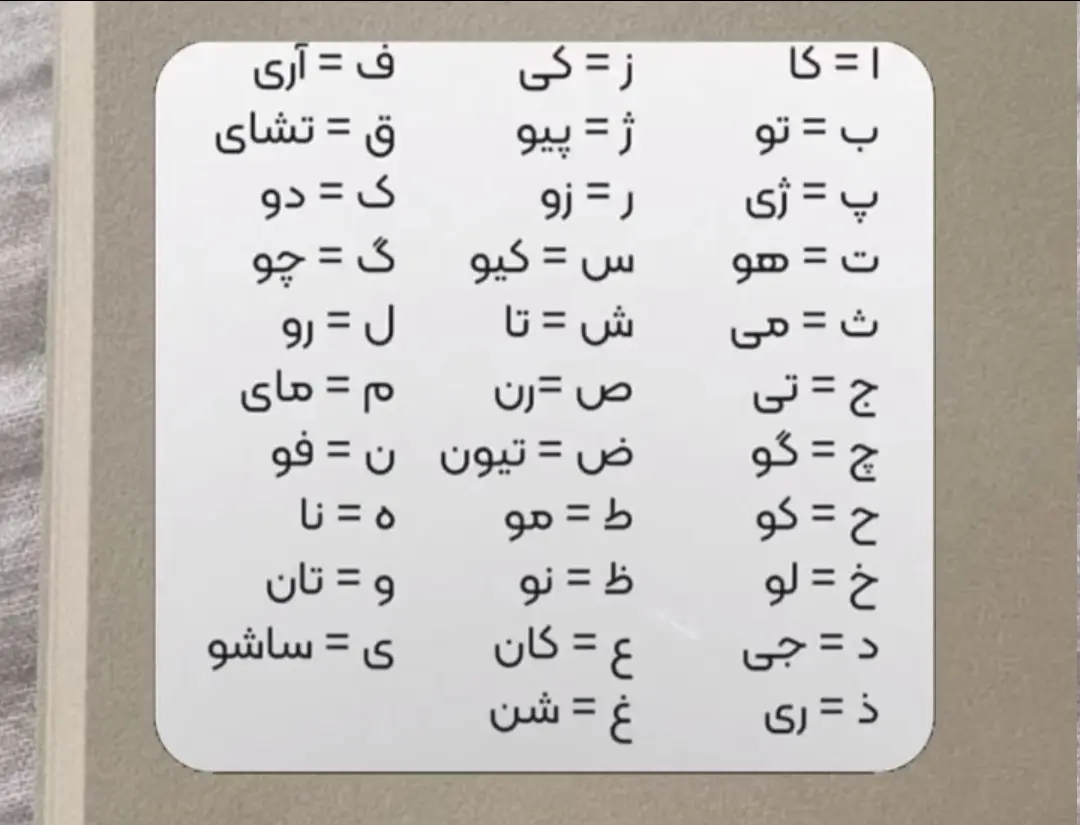 ا = کا
ب = تو
پ = ژی
ت = هو
ث = می
ج = تی
چ = گو
ح = کو
خ = لو
د = جی
ذ = ری
ز = کی
ژ = پیو
ر = زو
س = کیو
ش = تا
ص =رن
ض = تیون
ط = مو
ظ = نو
ع = کان
غ = شن
ف = آری
ق = تشای
ک = دو
گ = چو
ل = رو
م = مای
ن = فو
ه = نا
و = تان
ی = ساشو